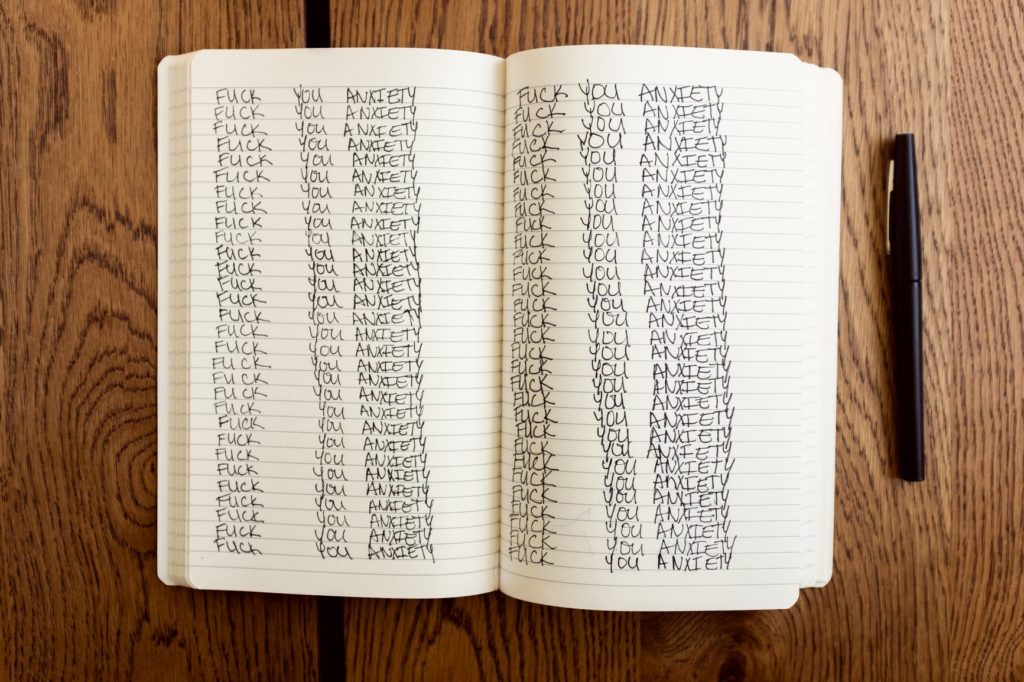 FUCK YOU ANXIETY
FUCK YOU ANXIETY
FUCK YOU ANXIETY
FUCK YOU ANXIETY
FUCK YOU ANXIETY
FUCK YOU ANXIETY
FUCK YOU ANXIETY
FUCK YOU ANXIETY
FUCK YOU ANXIETY
FUCK YOU ANXIETY
FUCK YOU ANXIETY
FUCK YOU ANXIETY
FUCK YOU ANXIETY
FUCK YOU ANXIETY
FUCK YOU ANXIETY
FUCK YOU ANXIETY
FUCK YOU ANXIETY
FUCK YOU ANXIETY
FUCK YOU ANXIETY
FUCK YOU ANXIETY
FUCK YOU ANXIETY
FUCK YOU ANXIETY
FUCK YOU ANXIETY
FUCK YOU ANXIETY
FUCK YOU ANXIETY
FUCK YOU ANXIETY
FUCK YOU ANXIETY
FUCK YOU ANXIETY
FUCK YOU ANXIETY
FUCK YOU ANXIETY
FUCK YOU ANXIETY
FUCK YOU ANXIETY
FUCK YOU ANXIETY
FUCK YOU ANXIETY
FUCK YOU ANXIETY
FUCK YOU ANXIETY
FUCK YOU ANXIETY
FUCK YOU ANXIETY
FUCK YOU ANXIETY
FUCK YOU ANXIETY
FUCK YOU ANXIETY
FUCK YOU ANXIETY
FUCK YOU ANXIETY
FUCK YOU ANXIETY
FUCK YOU ANXIETY
FUCK YOU ANXIETY
FUCK YOU ANXIETY
FUCK YOU ANXIETY
FUCK YOU ANXIETY
FUCK YOU ANXIETY
FUCK YOU ANXIETY
FUCK YOU ANXIETY
FUCK YOU ANXIETY
FUCK YOU ANXIETY
FUCK YOU ANXIETY
FUCK YOU ANXIETY
FUCK YOU ANXIETY
FUCK YOU ANXIETY
FUCK YOU ANXIETY
FUCK YOU ANXIETY